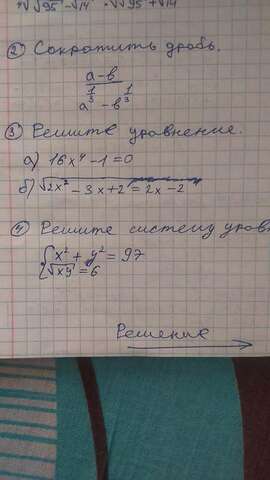 √√95 - √14 · √√95 + √14
② Сократить дробь.
a-в
a^(1/3) - в^(1/3)
③ Решите уравнение.
а) 16x⁴-1=0
б) √2x²-3x+2 = 2x-2
④ Решите систему
{x² + y² = 97
√xy = 6
Решение